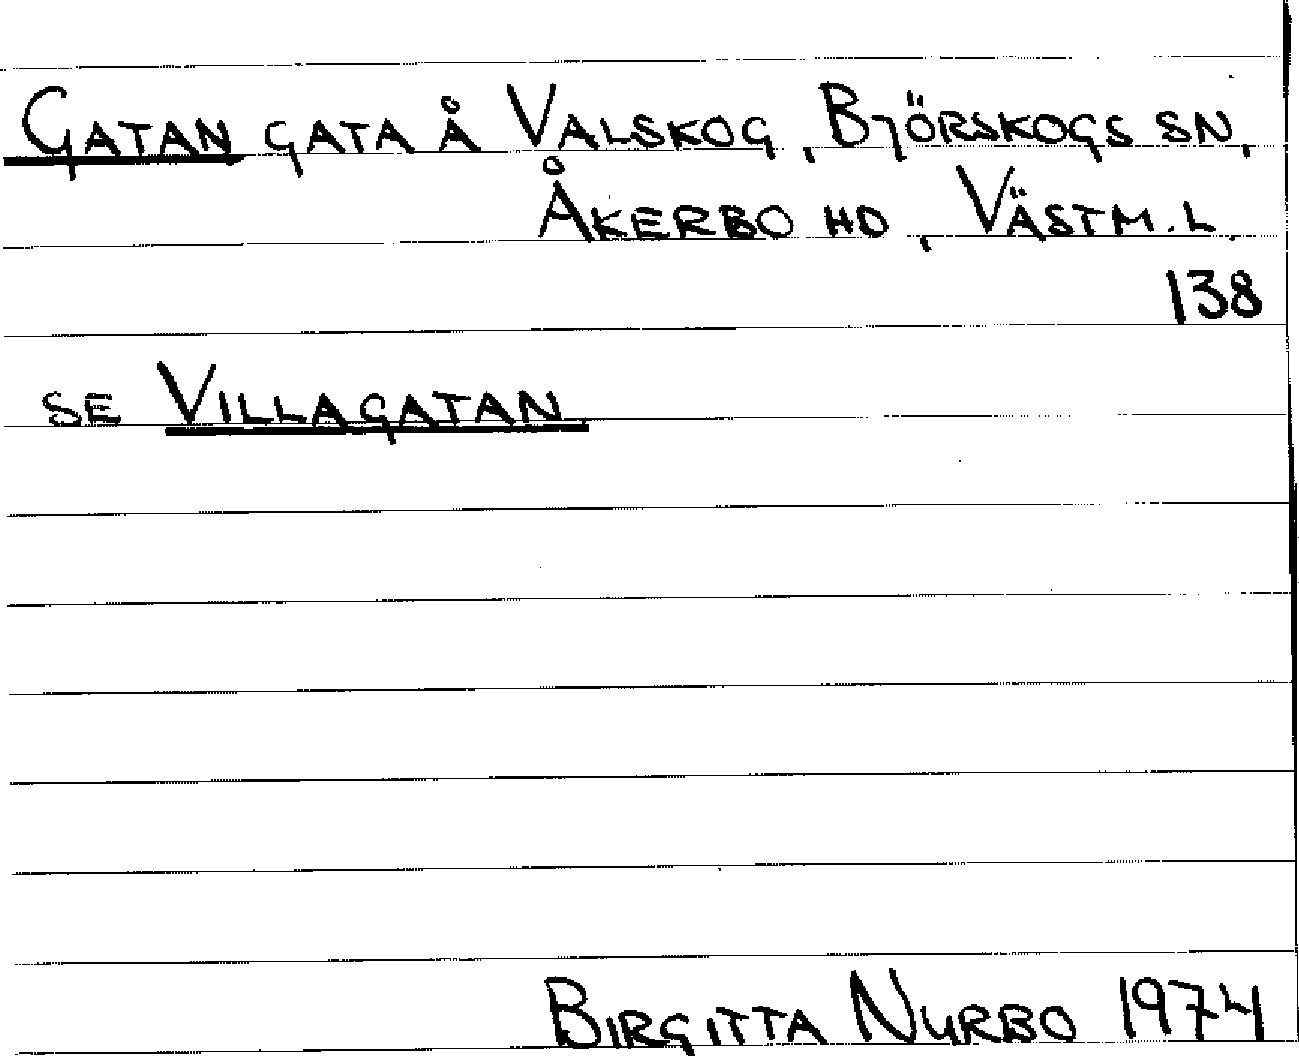 GATAN GATA Å VALSKOG, BJÖRSKOGS SN,
ÅKERBO HD, VÄSTM. L.
138
SE VILLAGATAN.
BIRGITTA NYRBO 1974